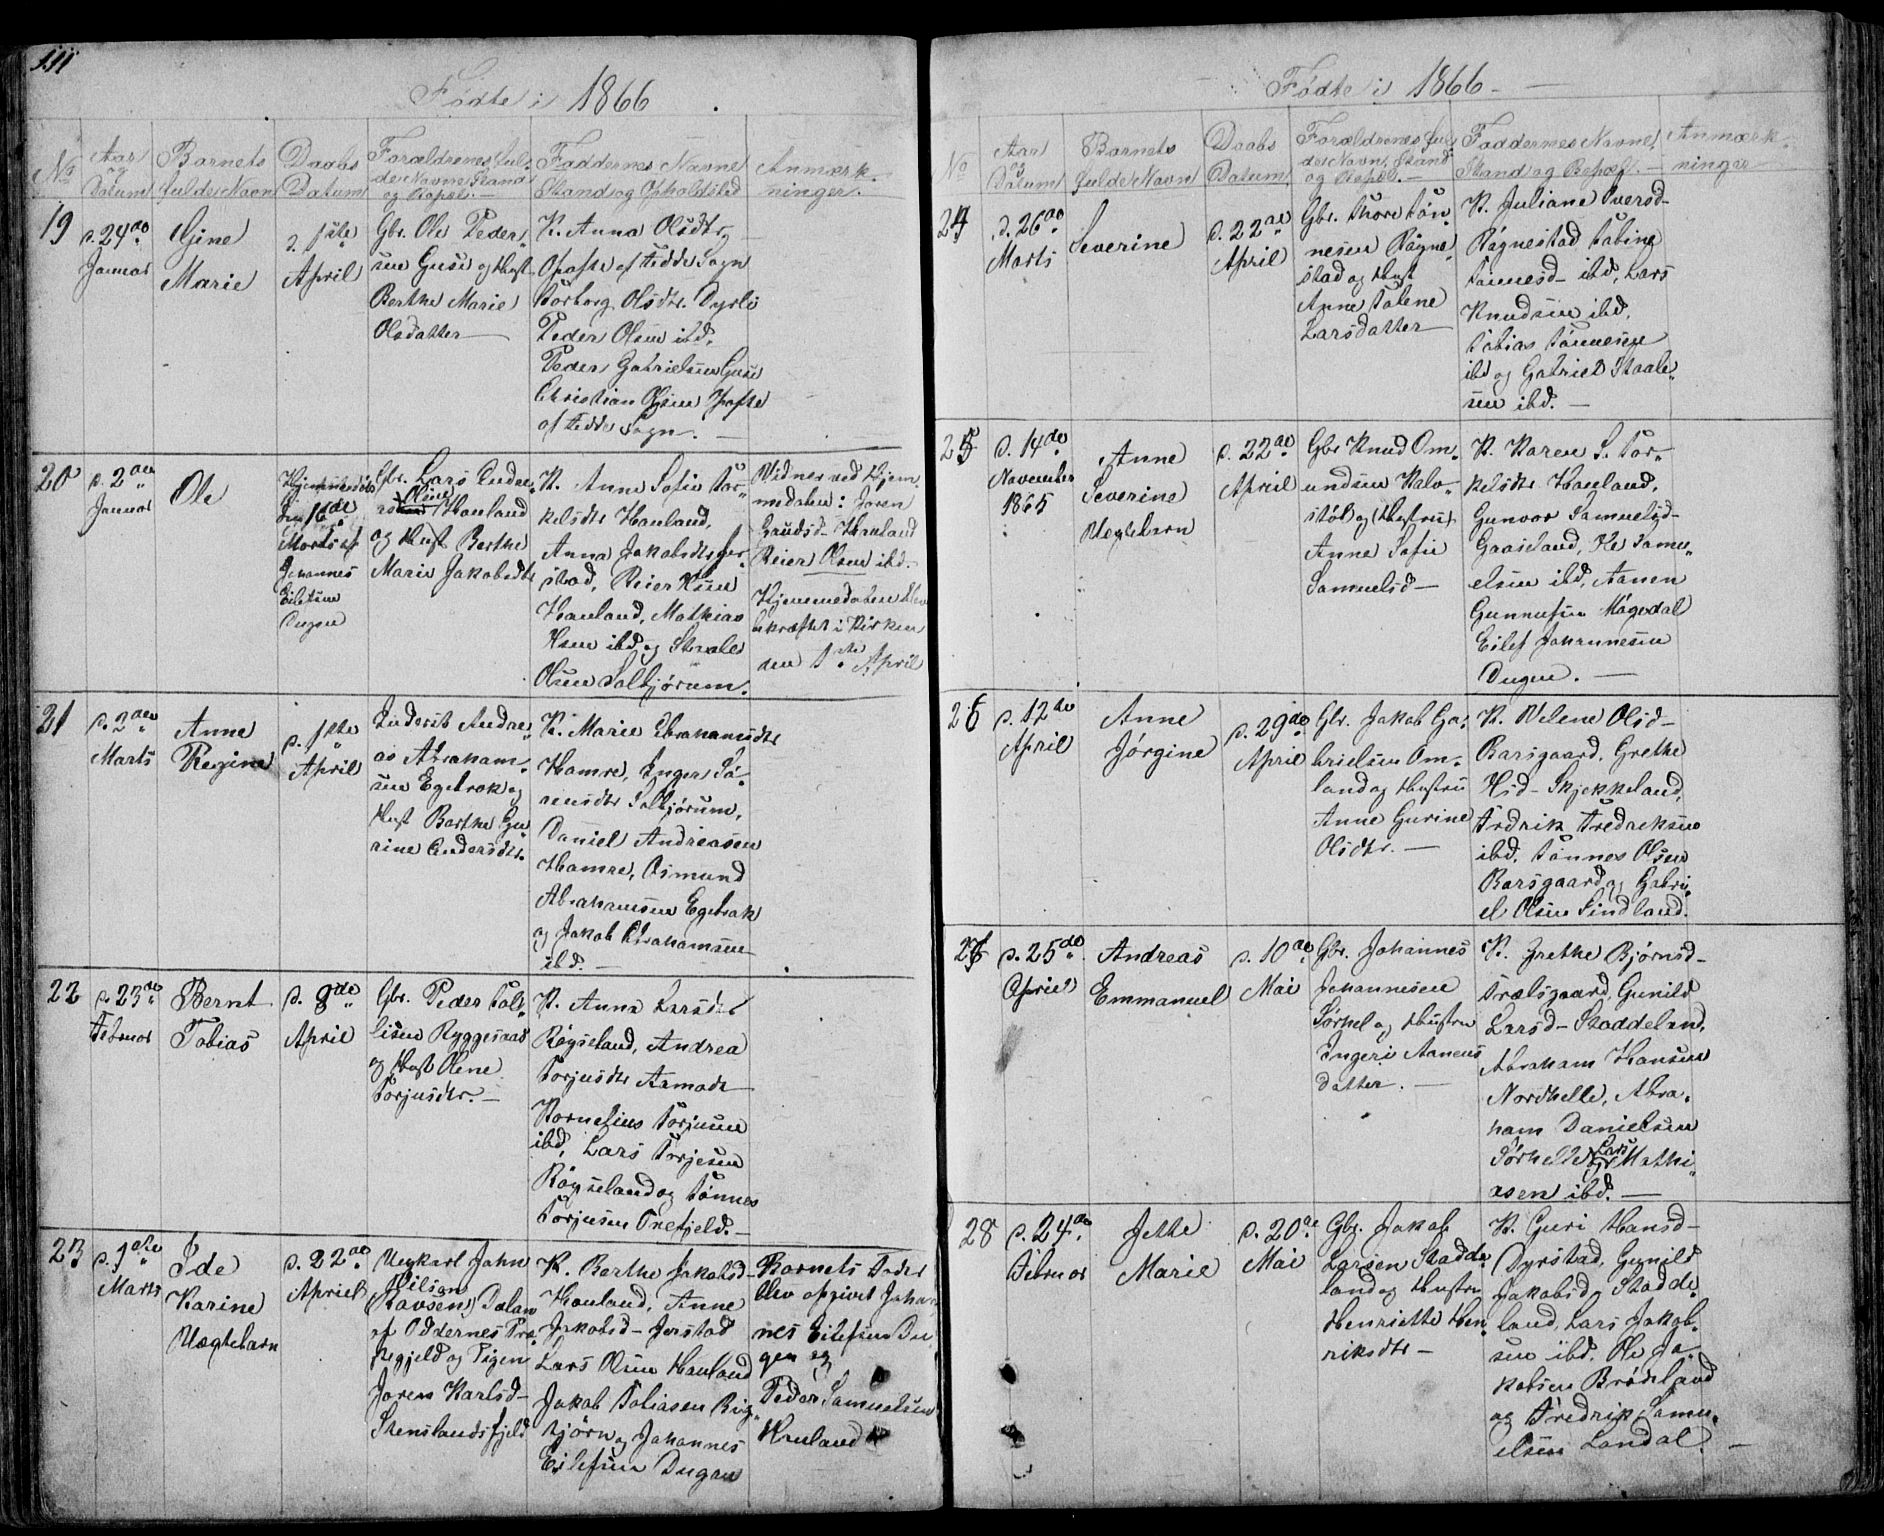 Fødte i 1866
No
Aar og Datum
Barnets fulde Navn
Daabs Datum
Forældrenes fulde Navne Stand og Bopæl. —
Faddernes Navne Stand og Opholdsted
Anmærkninger.
19
d. 24de
Januar
Gine
Marie
d. 1ste
April
Gbr. Ole Peder-
sen Guse og Hust
Berthe Marie
Olsdatter
K. Anna Olsdtr
Opofte af Fedde Sogn
Torborg Olsdtr. Dyrli
Peder Olsen ibd.
Peder Gabrielsen Guse
Christian Olsen Opofte
af Fedde Sogn. —
20
d. 2den
Januar
Ole
Hjemmedøbt
den 16de
Marts af
Johannes
Eilefsen
Dugan
Gbr. Lars Andre-
as Olsen Hauland
og Hust Berthe
Marie Jakobsdtr
K. Anne Sofie Tor-
kelsdtr Hauland,
Anna Jakobsdtr Jer-
stad, Reier Olsen
Hauland, Mathias
Olsen ibd og Staale
Olsen Salkjørum.
Vidner ved Hjem-
medaaben: Joren
Hauland
Reier Olsen ibd.
Hjemmedaaben blev
bekræftet i Kirken
den 1ste April
21
d. 2den
Marts
Anne
Regine
d. 1ste
April
Inderst Andre-
as Abraham-
sen Egebrok og
Hust Berthe Gu-
rine Andersdtr.
K. Marie Ebrahamsdtr
Hamre, Inger Tø-
nnesdtr Salkjørum,
Daniel Andreasen
Hamre, Osmund
Abrahamsen Egebrok
og Jakob Abrahamsen
ibd. —
22
d. 23de
Februar
Bernt
Tobias
d. 8de
April
Gbr. Peder Tol-
lisen Ryggesaas
og Hust Olene
Torjusdtr. —
K. Anna Larsdtr
Røyseland, Andrea
Torjusdtr Aamodt
Kornelius Torjusen
ibd, Lars Torjesen
Røyseland og Tønnes
Torjusen Trefjeld. —
23
d. 1ste
Marts
Ide
Karine
Uægtebarn
d. 22de
April
Ungkarl John
Nilsen
Dalan
af Oddernes Præ-
stegjeld og Pigen
Joren Karlsd-
Stenslandsfjeld
K. Berthe Jakobsd-
Hauland, Anne
Jakobsd- Jerstad
Lars Olsen Hauland
Jakob Tobiasen Big-
tjørn og Johannes
Eilefsen Dugan
Barnets Fader
blev opgivet Johan-
nes Eilefsen Du-
gan og
Peder Samuelsen
Hauland
Fødte i 1866 —
No
Aar og Datum
Barnets fulde Navn
Daabs Datum
Forældrenes fulde Navn, Stand og Bopæl. —
Faddernes Navne, Stand og Bopæl. —
Anmærkninger
24
d. 26de
Marts
Severine
d. 22de
April
Gbr. Thore Tøn-
nesen Røgne-
stad og Hust
Anne Tolene
Larsdatter
K. Juliane Iversd-
Røgnestad Tobine
Tønnesd- ibd, Lars
Knudsen ibd,
Tobias Tønnesen
ibd og Gabriel Staale-
sen ibd. —
25
d. 14de
November
1865
Anne
Severine
Uegtebarn
d. 22de
April
Gbr Knud Om-
undsen Kalv-
støl og (Hustru)
Anne Sofie
Samuelsd —
K. Karen S. Tor-
kelsdtr Hauland,
Gunvor Samuelsd-
Gaaseland, Ole Samu-
elsen ibd, Aanen
Gunnufsen Møgedal
Eilef Johannesen
Dugan. —
26
d. 12de
April
Anne
Jørgine
d. 29de
April
Gbr. Jakob Ga-
brielsen Om-
land og Hustru
Anne Gurine
Olsdtr. —
K. Velene Olsd-
Barsgaard, Grethe
Hsd- Skjekkeland,
Fredrik Fredriksen
ibd. Tønnes Olsen
Barsgaard og Gabri-
el Olsen Sindland.
27
d. 25de
April
Andreas
Emmanuel
d. 10de
Mai
Gbr. Johannes
Johannesen
Sørhel og Hustru
Ingeri Aanens
datter. —
K. Grethe Bjørnsd-
Trælsgaard, Gunild
Larsd- Staddeland,
Abraham Hansen
Nordhelle, Abra-
ham Danielsen
Sørhelle og Lars Mathi-
asen ibd. —
28
d. 24de
Februar
Jethe
Marie
d. 20de
Mai
Gbr. Jakob
Larsen Stadde-
land og Hustru
Henriette Hen-
riksdtr —
K. Guri Hansd-
Dyrstad, Gunild
Jakobsd- Stadde-
land, Lars Jakob-
sen ibd. Ole Ja-
kobsen Brødeland
og Fredrik Samu-
elsen Landal. —